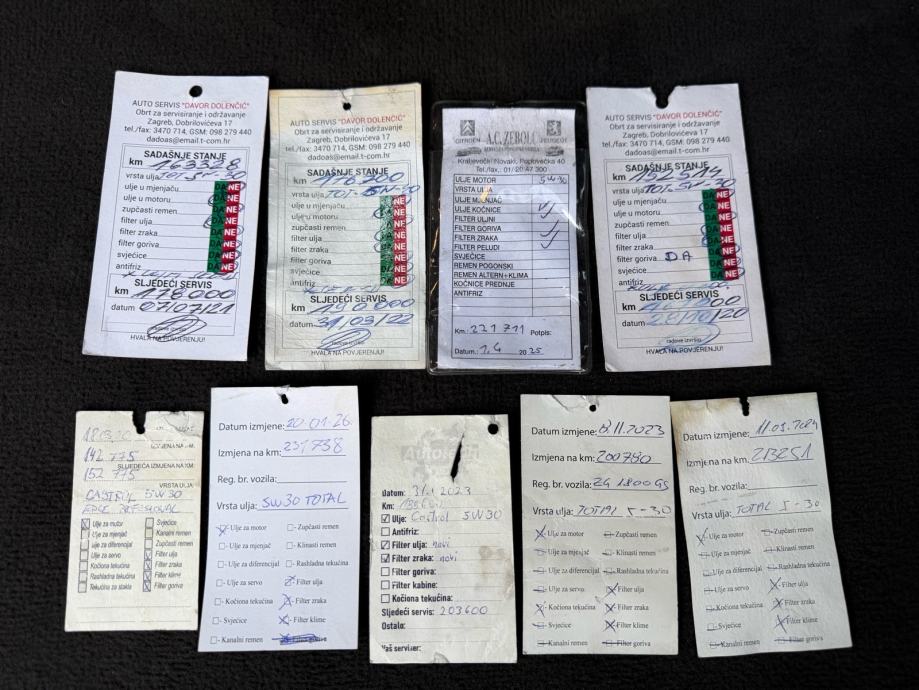 AUTO SERVIS "DAVOR DOLENČIĆ"
Obrt za servisiranje i održavanje
Zagreb, Dobrilovićeva 17
tel./fax: 3470 714, GSM: 098 279 440
dadoas@email.t-com.hr
SADAŠNJE STANJE
km 163328
vrsta ulja TOT-5W-30
ulje u mjenjaču DA NE
ulje u motoru DA NE
zupčasti remen DA NE
filter ulja DA NE
filter zraka DA NE
filter goriva DA NE
svjećice DA NE
antifriz DA NE
SLJEDEĆI SERVIS
km 178000
datum 07/07/21
HVALA NA POVJERENJU!
AUTO SERVIS "DAVOR DOLENČIĆ"
Obrt za servisiranje i održavanje
Zagreb, Dobrilovićeva 17
tel./fax: 3470 714, GSM: 098 279 440
dadoas@email.t-com.hr
SADAŠNJE STANJE
km 176200
vrsta ulja TOT-5W-30
ulje u mjenjaču DA NE
ulje u motoru DA NE
zupčasti remen DA NE
filter ulja DA NE
filter zraka DA NE
filter goriva DA NE
svjećice DA NE
antifriz DA NE
SLJEDEĆI SERVIS
km 190000
datum 31/03/22
HVALA NA POVJERENJU!
CITROËN A.C. ZEBOLC PEUGEOT
Kraljevečki Novaki, Puplovečka 40
Tel./fax.: 01/20 47 300
ULJE MOTOR 5W30
VRSTA ULJA
ULJE MJENJAČ
ULJE KOČNICE
FILTER ULJNI
FILTER GORIVA
FILTER ZRAKA
FILTER PELUDI
SVJEĆICE
REMEN POGONSKI
REMEN ALTERN+KLIMA
KOČNICE PREDNJE
ANTIFRIZ
Km.: 221711 Potpis:
Datum.: 1.4 2025
AUTO SERVIS "DAVOR DOLENČIĆ"
Obrt za servisiranje i održavanje
Zagreb, Dobrilovićeva 17
tel./fax: 3470 714, GSM: 098 279 440
dadoas@email.t-com.hr
SADAŠNJE STANJE
km 152514
vrsta ulja TOT-5W-30
ulje u mjenjaču DA NE
ulje u motoru DA NE
zupčasti remen DA NE
filter ulja DA NE
filter zraka DA NE
filter goriva DA
svjećice DA NE
antifriz DA NE
SLJEDEĆI SERVIS
km
datum 20/10/20
radove izvršio
HVALA NA POVJERENJU!
142 775
SLJEDEĆA IZMJENA NA KM
152 775
VRSTA ULJA
CASTROL 5W30
EDGE PROFESIONAL
Ulje za motor Svjećice
Ulje za mjenjač Kanalni remen
ulje za diferencijal Zupčasti remen
Ulje za servo Filter ulja
Kočiona tekućina Filter zraka
Rashladna tekućina Filter klime
Tekućina za stakla Filter goriva
Datum izmjene: 20.01.26.
Izmjena na km: 231738
Reg. br. vozila:
Vrsta ulja: 5W30 TOTAL
- Ulje za motor - Zupčasti remen
- Ulje za mjenjač - Klinasti remen
- Ulje za diferencijal - Rashladna tekućina
- Ulje za servo - Filter ulja
- Kočiona tekućina - Filter zraka
- Svjećice - Filter klime
- Kanalni remen - Filter goriva
Datum: 2023
Km:
Ulje: Castrol 5W30
Antifriz:
Filter ulja: novi
Filter zraka: novi
Filter goriva:
Filter kabine:
Kočiona tekućina:
Sljedeći servis: 203600
Ostalo:
Vaš serviser:
Datum izmjene: 8.11.2023
Izmjena na km: 200790
Reg. br. vozila: ZG 1800GS
Vrsta ulja: TOTAL 5-30
- Ulje za motor - Zupčasti remen
- Ulje za mjenjač - Klinasti remen
- Ulje za diferencijal - Rashladna tekućina
- Ulje za servo - Filter ulja
- Kočiona tekućina - Filter zraka
- Svjećice - Filter klime
- Kanalni remen - Filter goriva
Datum izmjene: 11.09.2024
Izmjena na km: 213251
Reg. br. vozila:
Vrsta ulja: TOTAL 5-30
- Ulje za motor - Zupčasti remen
- Ulje za mjenjač - Klinasti remen
- Ulje za diferencijal - Rashladna tekućina
- Ulje za servo - Filter ulja
- Kočiona tekućina - Filter zraka
- Svjećice - Filter klime
- Kanalni remen - Filter goriva